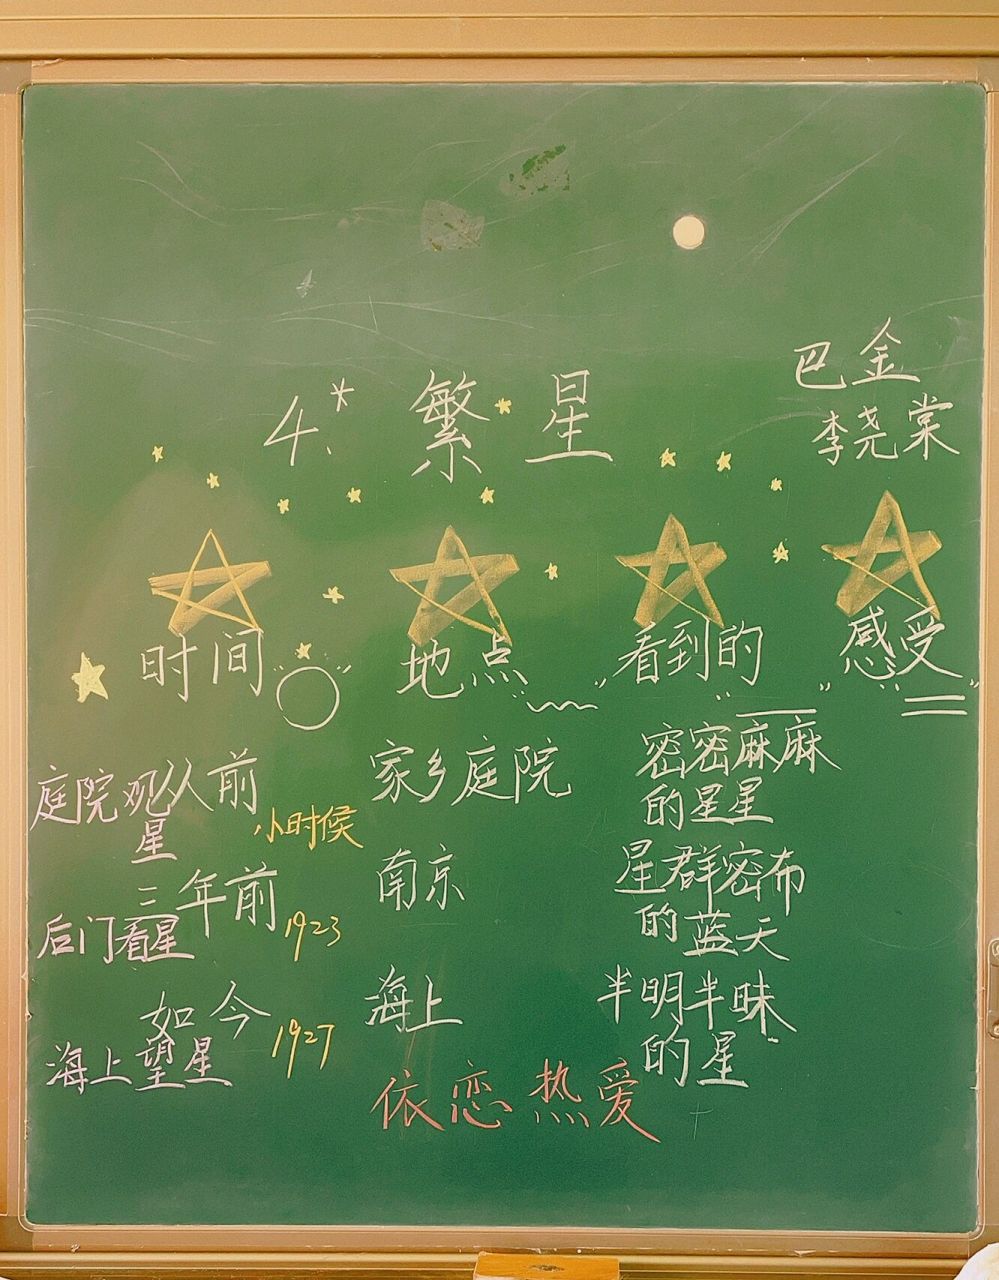 4.* 繁星
巴金
李尧棠
时间 地点 看到的 感受
从前 家乡庭院 密密麻麻
的星星
庭院观
星
小时候
三年前 南京 星群密布
的蓝天
后门看星
1923
如今 海上 半明半昧
的星
海上望星
1927
依恋 热爱